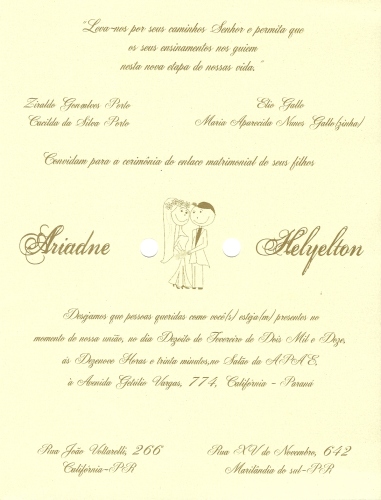 "Leva-nos por seus caminhos Senhor e permita que
os seus ensinamentos nos guiem
nesta nova etapa de nossas vida."
Ziraldo Gonçalves Porto
Cacilda da Silva Porto
Elio Gallo
Maria Aparecida Nunes Gallo(zinha)
Convidam para a cerimônia do enlace matrimonial de seus filhos
Ariadne
Helyelton
Desejamos que pessoas queridas como você(s) esteja(m) presentes no
momento de nossa união, no dia Dezoito de Fevereiro de Dois Mil e Doze,
às Dezenove Horas e trinta minutos,no Salão da A-P-A-E,
à Avenida Getúlio Vargas, 774, Califórnia - Paraná
Rua João Voltarelli, 266
Califórnia-PR
Rua XV de Novembro, 642
Marilândia do sul-PR